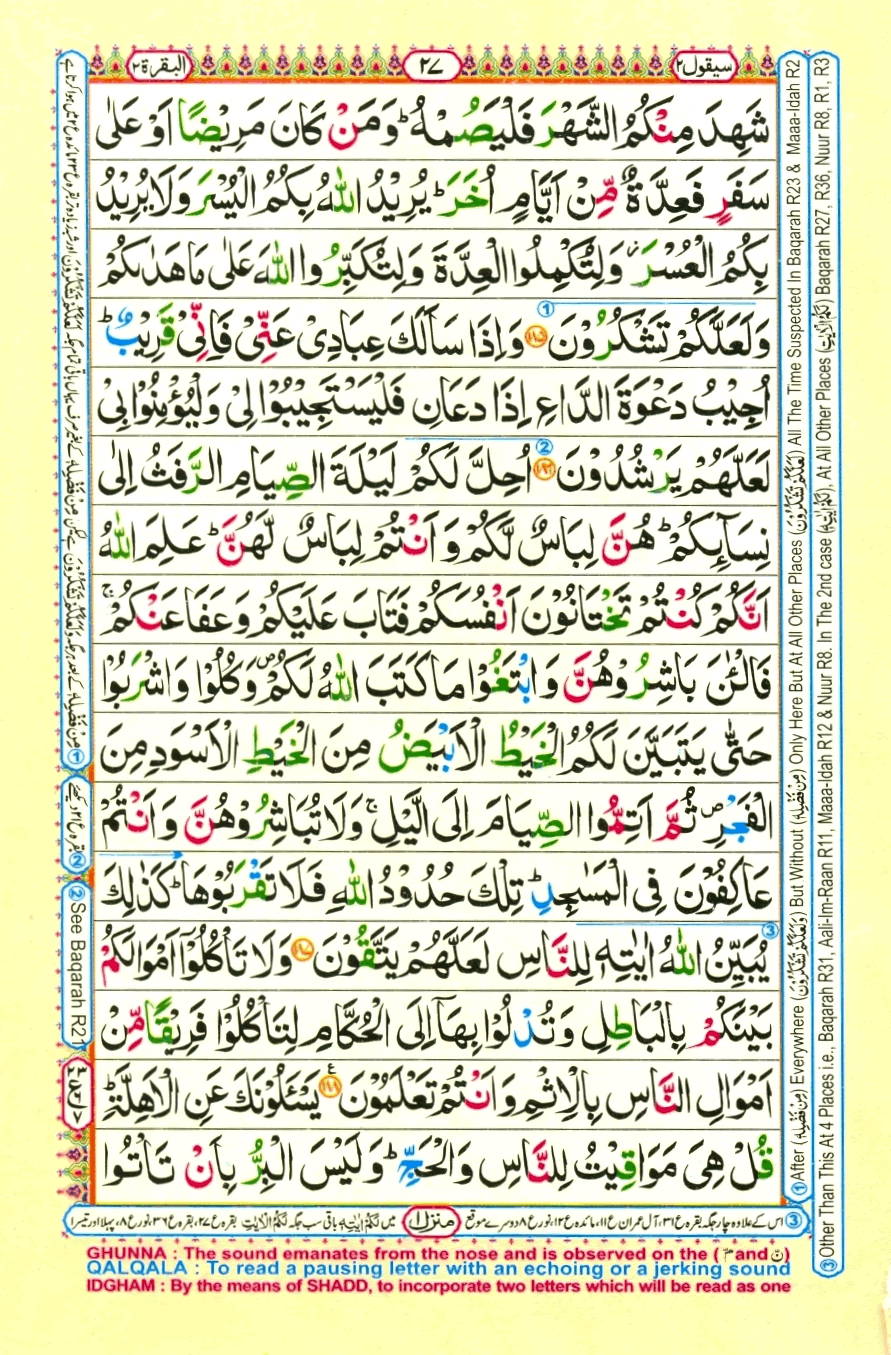 البقرة ٢
٢٧
سیقول ٢
شَهِدَ مِنْكُمُ الشَّهْرَ فَلْيَصُمْهُ ؕ وَمَنْ كَانَ مَرِيْضًا اَوْ عَلٰى
سَفَرٍ فَعِدَّةٌ مِّنْ اَيَّامٍ اُخَرَ ؕ يُرِيْدُ اللّٰهُ بِكُمُ الْيُسْرَ وَلَا يُرِيْدُ
بِكُمُ الْعُسْرَ ۫ وَلِتُكْمِلُوا الْعِدَّةَ وَلِتُكَبِّرُوا اللّٰهَ عَلٰى مَا هَدٰىكُمْ
وَلَعَلَّكُمْ تَشْكُرُوْنَ ﴿۱۸۵﴾ وَاِذَا سَاَلَكَ عِبَادِىْ عَنِّىْ فَاِنِّىْ قَرِيْبٌ ؕ
اُجِيْبُ دَعْوَةَ الدَّاعِ اِذَا دَعَانِ فَلْيَسْتَجِيْبُوْا لِىْ وَلْيُؤْمِنُوْا بِىْ
لَعَلَّهُمْ يَرْشُدُوْنَ ﴿۱۸۶﴾ اُحِلَّ لَكُمْ لَيْلَةَ الصِّيَامِ الرَّفَثُ اِلٰى
نِسَآئِكُمْ ؕ هُنَّ لِبَاسٌ لَّكُمْ وَ اَنْتُمْ لِبَاسٌ لَّهُنَّ ؕ عَلِمَ اللّٰهُ
اَنَّكُمْ كُنْتُمْ تَخْتَانُوْنَ اَنْفُسَكُمْ فَتَابَ عَلَيْكُمْ وَعَفَا عَنْكُمْ ۚ
فَالْـٰٔنَ بَاشِرُوْهُنَّ وَابْتَغُوْا مَا كَتَبَ اللّٰهُ لَكُمْ ۪ وَكُلُوْا وَاشْرَبُوْا
حَتّٰى يَتَبَيَّنَ لَكُمُ الْخَيْطُ الْاَبْيَضُ مِنَ الْخَيْطِ الْاَسْوَدِ مِنَ
الْفَجْرِ ۪ ثُمَّ اَتِمُّوا الصِّيَامَ اِلَى الَّيْلِ ۚ وَلَا تُبَاشِرُوْهُنَّ وَاَنْتُمْ
عَاكِفُوْنَ فِى الْمَسٰجِدِ ؕ تِلْكَ حُدُوْدُ اللّٰهِ فَلَا تَقْرَبُوْهَا ؕ كَذٰلِكَ
يُبَيِّنُ اللّٰهُ اٰيٰتِهٖ لِلنَّاسِ لَعَلَّهُمْ يَتَّقُوْنَ ﴿۱۸۷﴾ وَلَا تَاْكُلُوْٓا اَمْوَالَكُمْ
بَيْنَكُمْ بِالْبَاطِلِ وَتُدْلُوْا بِهَآ اِلَى الْحُكَّامِ لِتَاْكُلُوْا فَرِيْقًا مِّنْ
اَمْوَالِ النَّاسِ بِالْاِثْمِ وَاَنْتُمْ تَعْلَمُوْنَ ﴿۱۸۸﴾ يَسْـَٔلُوْنَكَ عَنِ الْاَهِلَّةِ ؕ
قُلْ هِىَ مَوَاقِيْتُ لِلنَّاسِ وَالْحَجِّ ؕ وَلَيْسَ الْبِرُّ بِاَنْ تَاْتُوا
① After (مِنْ فَضْلِهٖ) Everywhere (وَلَعَلَّكُمْ تَشْكُرُوْنَ) But Without (مِنْ فَضْلِهٖ) Only Here But At All Other Places (لَعَلَّكُمْ تَشْكُرُوْنَ) All The Time Suspected In Baqarah R23 & Maaa-Idah R2
③ Other Than This At 4 Places i.e., Baqarah R31, Aali-Im-Raan R11, Maaa-idah R12 & Nuur R8. In The 2nd case (لَكُمْ اٰيٰتِهٖ), At All Other Places (لَكُمُ الْاٰيٰتِ) Baqarah R27, R36, Nuur R8, R1, R3
② بقرہ ع ۲۱ دیکھئے
② See Baqarah R21
③ اس کے علاوہ چار جگہ بقرہ ع ۳۱، آل عمران ع ۱۱، مائدہ ع ۱۲، نور ع ۸ دوسرے موقع
منزل ١
میں لَكُمْ اٰيٰتِهٖ باقی سب جگہ لَكُمُ الْاٰيٰتِ بقرہ ع ۲۷، بقرہ ع ۳۶، نور ع ۸، پہلا اور تیسرا
GHUNNA : The sound emanates from the nose and is observed on the ( مّ and نّ )
QALQALA : To read a pausing letter with an echoing or a jerking sound
IDGHAM : By the means of SHADD, to incorporate two letters which will be read as one